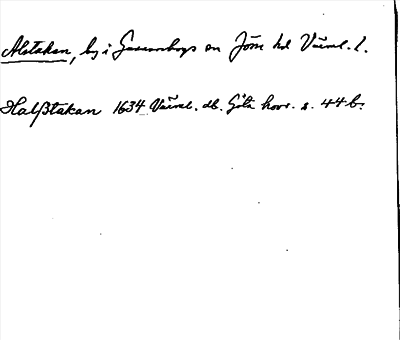 Alstakan, by i Gunnarskogs sn Jösse hd Värml. l.
Halßtakan 1634 Värml. db. Göta hovr. s. 44 b.